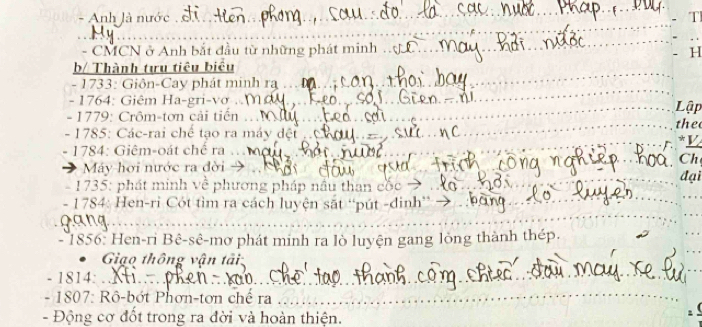 - Anh là nước đi tiên phong, sau đó là các nước Pháp,
Mỹ
- CMCN ở Anh bắt đầu từ những phát minh về máy hơi nước
b/ Thành tựu tiêu biểu
- 1733: Giôn-Cay phát minh ra con thoi bay
- 1764: Giêm Ha-gri-vơ máy kéo sợi Gien-ni
- 1779: Crôm-tơn cải tiến máy kéo sợi
- 1785: Các-rai chế tạo ra máy dệt chạy = sức nc
- 1784: Giêm-oát chế ra máy hơi nước
➔ Máy hơi nước ra đời → khởi đầu quá trình công nghiệp hoá
- 1735: phát minh về phương pháp nấu than cốc → lò hơi
- 1784: Hen-ri Cót tìm ra cách luyện sắt "pút -đinh" → bằng lò luyện
gang
- 1856: Hen-ri Bê-sê-mơ phát minh ra lò luyện gang lỏng thành thép.
• Giao thông vận tải:
- 1814: Xti-phen-xơn chế tạo thành công chiếc đầu máy xe lử
- 1807: Rô-bớt Phơn-tơn chế ra
- Động cơ đốt trong ra đời và hoàn thiện.
H
Lập
theo
Ch
đại